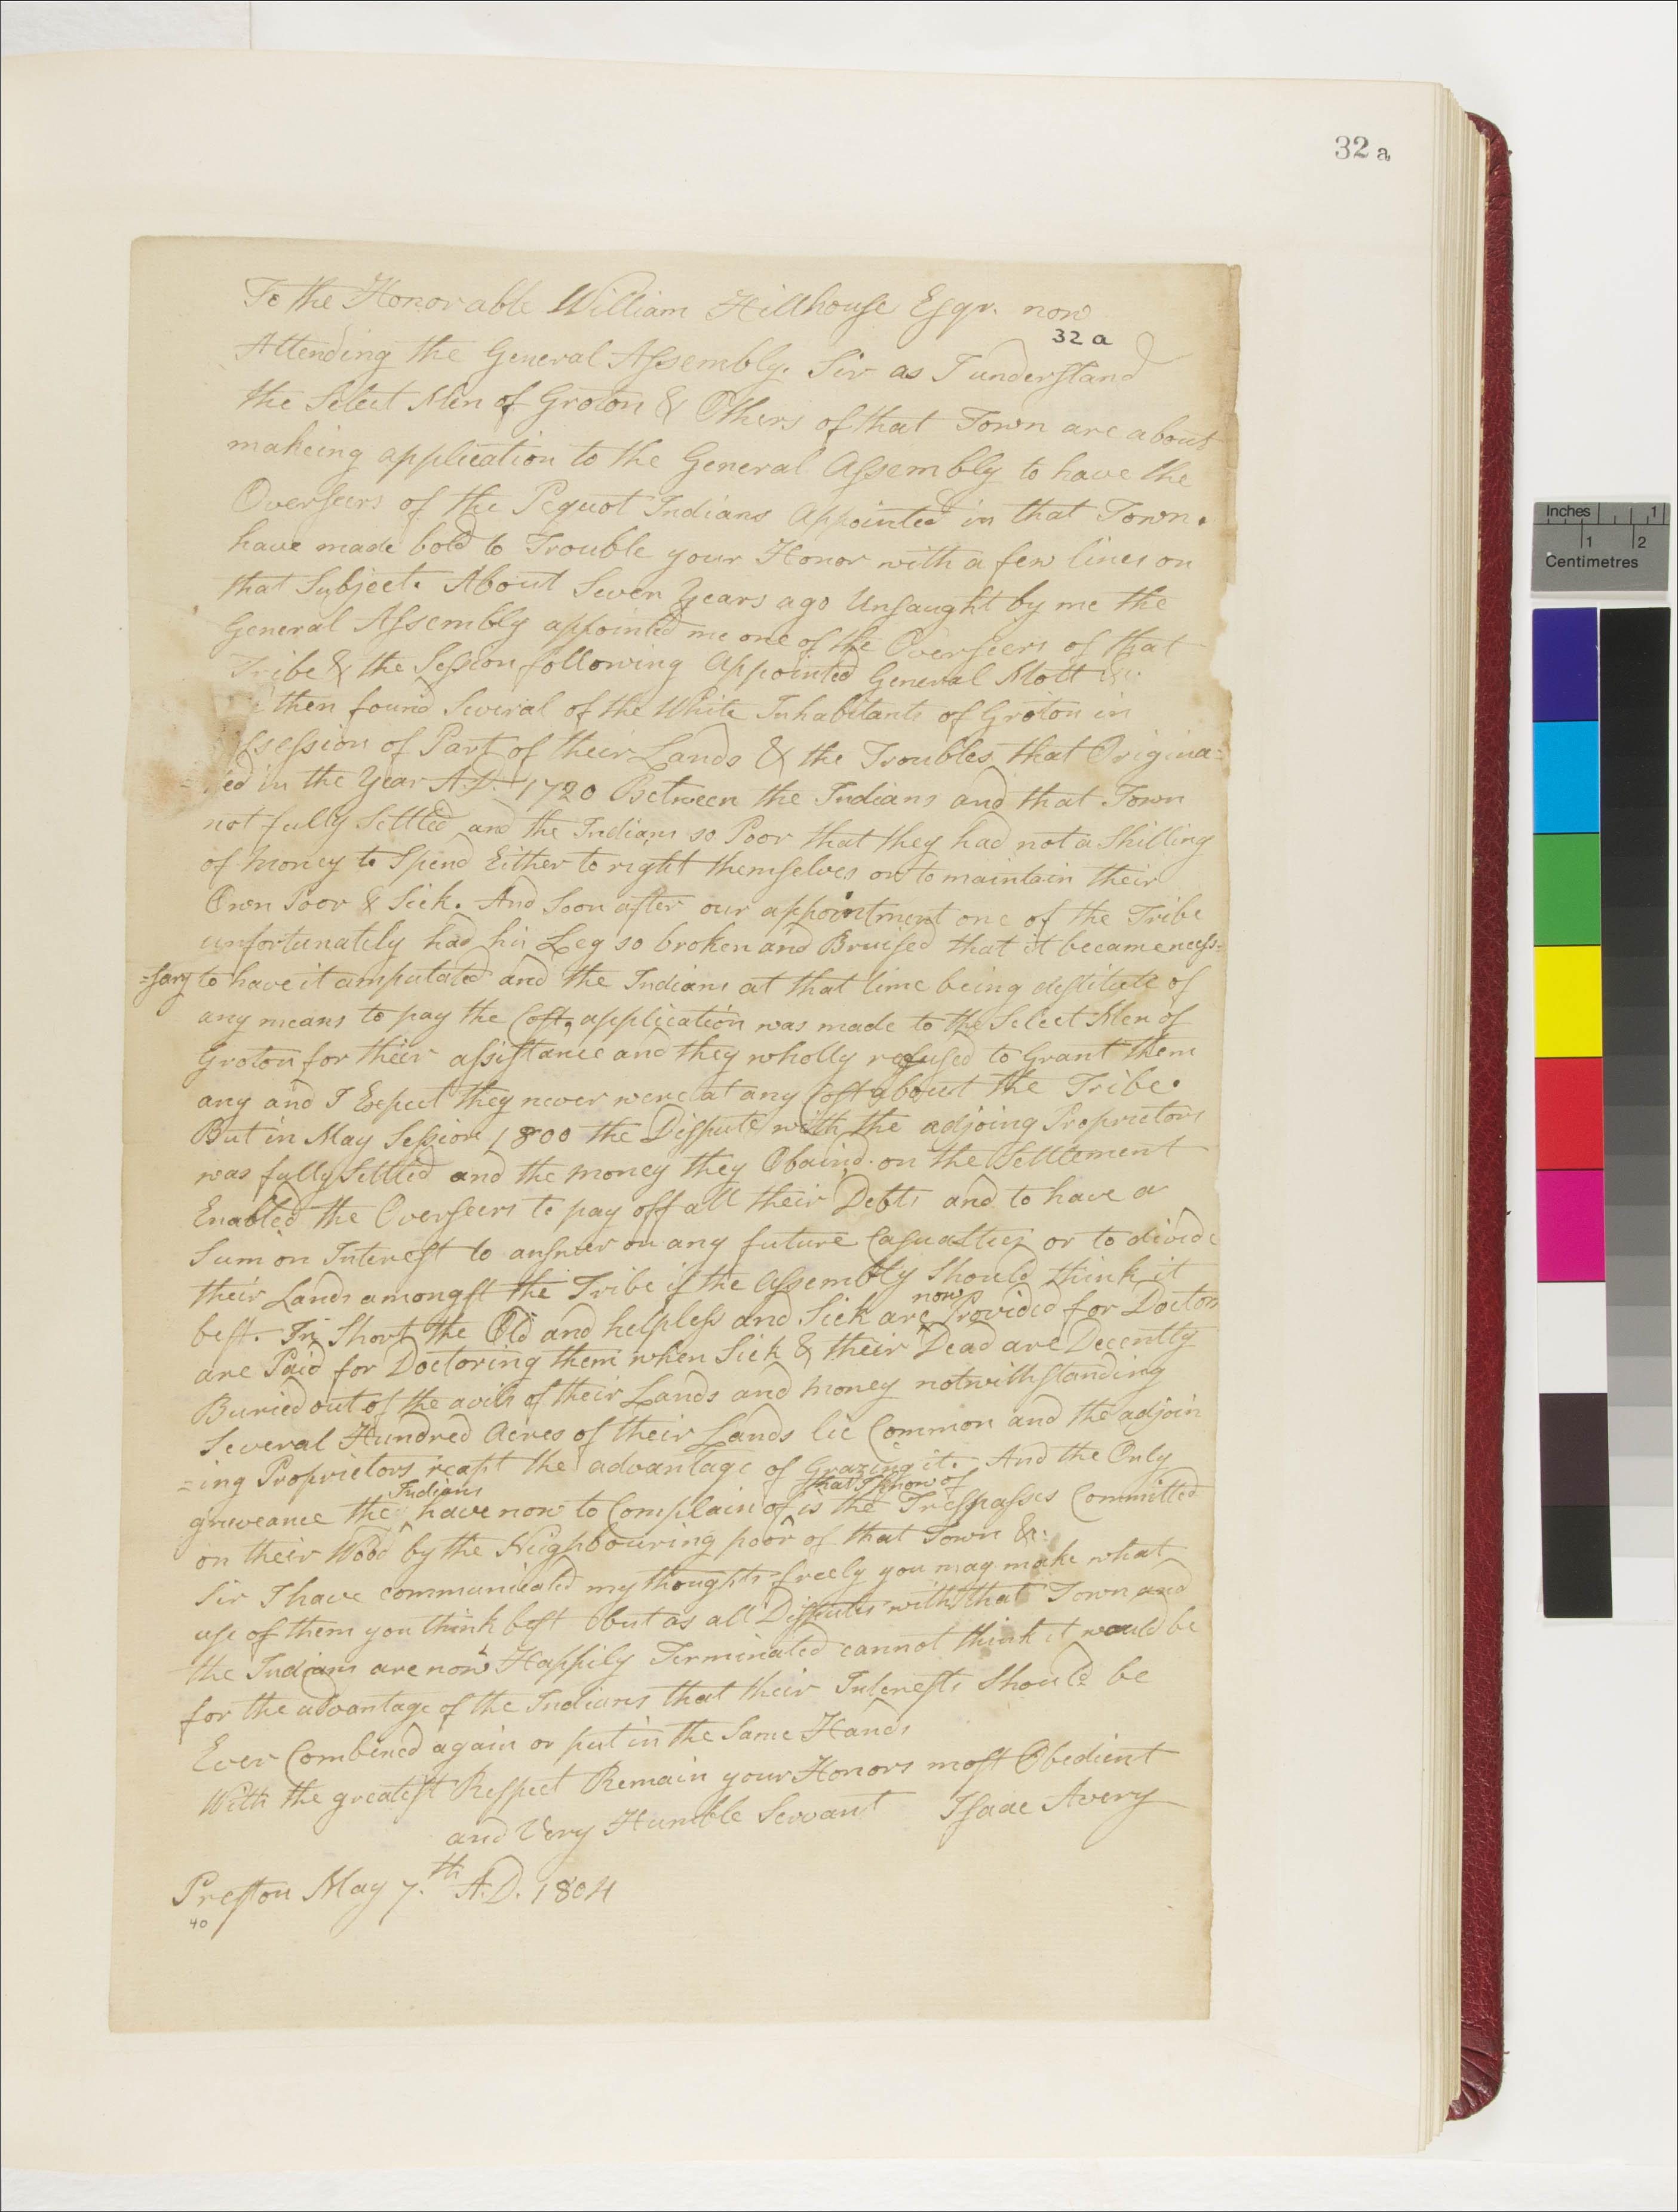 32 a
To the Honorable William Hillhouse Esqr. now
32 a
Attending the General Assembly. Sir as I understand
the Select Men of Groton & Others of that Town are about
makeing application to the General Assembly to have the
Overseers of the Pequot Indians Appointed in that Town.
have made bold to Trouble your Honor with a few lines on
that Subject. About Seven Years ago Unsaught by me the
General Assembly appointed me one of the Overseers of that
Tribe & the Session following Appointed General Mott &c.
then found Several of the White Inhabitants of Groton in
ssession of Part of their Lands & the Troubles that Origina=
=ted in the Year A.D. 1720 Between the Indians and that Town
not fully Settled and the Indians so Poor that they had not a Shilling
of money to Spend Either to right themselves or to maintain their
Own Poor & Sick. And Soon after our appointment one of the Tribe
unfortunately had his Leg so broken and Bruised that it became necess=
=sary to have it amputated and the Indians at that time being destitute of
any means to pay the Cost, application was made to the Select Men of
Groton for their assistance and they wholly refused to Grant them
any and I Expect they never were at any Cost about the Tribe.
But in May Session 1800 the Dispute with the adjoing Proprietors
was fully Settled and the money they Obaind. on the Settlement
Enabled the Overseers to pay off all their Debts and to have a
Sum on Interest to answer on any future Casualties or to divide
their Lands amongst the Tribe if the Assembly Should think it
now
best. In Short the Old and helpless and Sick are Provided for Doctors
are Paid for Doctoring them when Sick & their Dead are Decently
Buried out of the avils of their Lands and money notwithstanding
Several Hundred Acres of their Lands lie Common and the adjoin
=ing Proprietors reapt the advantage of Grazing it. And the Only
Indians that I know of
greveance the have now to Complain of is the Trespasses Committed
on their Wood by the Neighbouring poor of that Town &c:
Sir I have communicated my thoughts freely you may make what
use of them you think best but as all Disputes with that Town and
the Indians are now Happily Terminated cannot think it would be
for the advantage of the Indians that their Interests Should be
Ever Combined again or put in the Same Hands
With the greatest Respect Remain your Honors most Obedient
and Very Humble Servant Isaac Avery
Preston May 7.th A.D. 1804
40
Inches 1
1 2
Centimetres